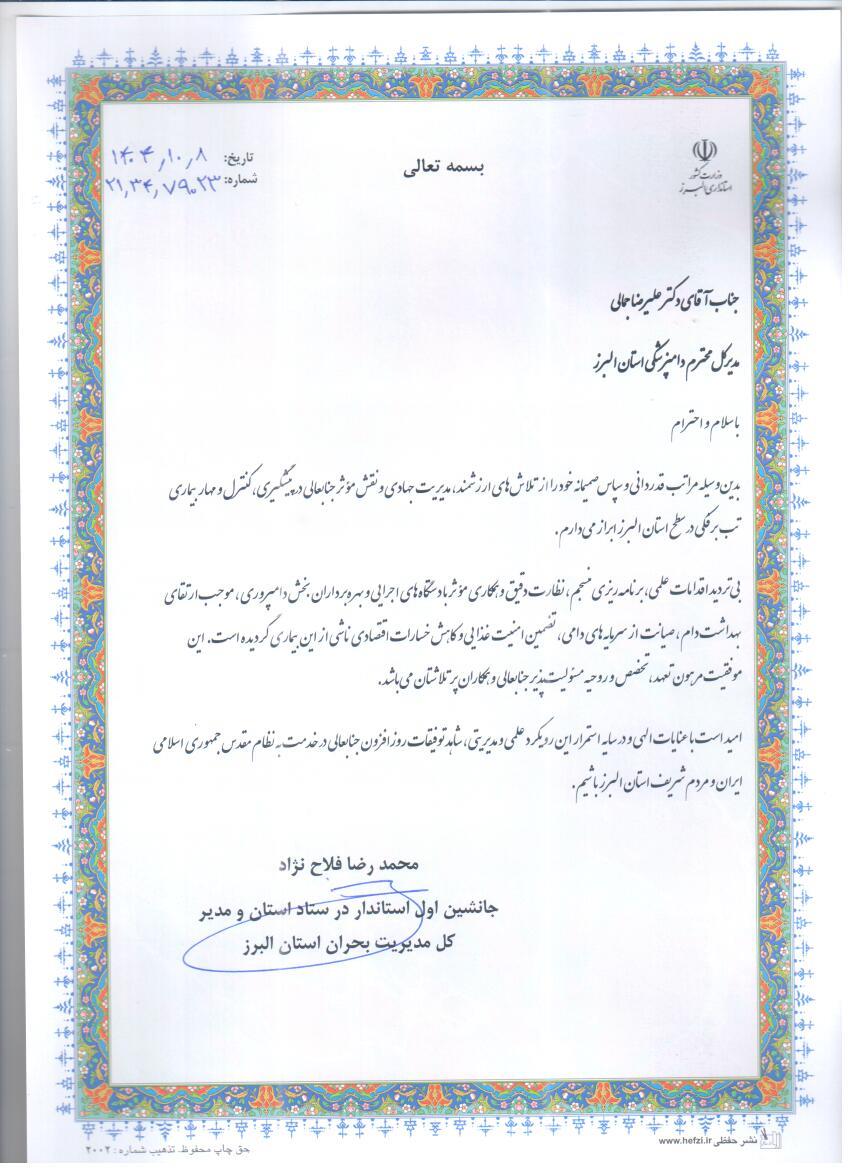 بسمه تعالی
وزارت کشور
استانداری البرز
تاریخ: ۱۴۰۴٫۱۰٫۸
شماره: ۲۱٫۳۴٫۷۹۰۲۳
جناب آقای دکتر علیرضا جمالی
مدیرکل محترم دامپزشکی استان البرز
با سلام و احترام
بدین وسیله مراتب قدردانی و سپاس صمیمانه خود را از تلاش های ارزشمند، مدیریت جهادی و نقش مؤثر جنابعالی در پیشگیری، کنترل و مهار بیماری
تب برفکی در سطح استان البرز ابراز می دارم.
بی تردید اقدامات علمی، برنامه ریزی منسجم، نظارت دقیق و همکاری مؤثر با دستگاه های اجرایی و بهره برداران بخش دامپروری، موجب ارتقای
بهداشت دام، صیانت از سرمایه های دامی، تضمین امنیت غذایی و کاهش خسارات اقتصادی ناشی از این بیماری گردیده است. این
موفقیت مرهون تعهد، تخصص و روحیه مسئولیت پذیر جنابعالی و همکاران پرتلاشتان می باشد.
امید است با عنایات الهی و در سایه استمرار این رویکرد علمی و مدیریتی، شاهد توفیقات روزافزون جنابعالی در خدمت به نظام مقدس جمهوری اسلامی
ایران و مردم شریف استان البرز باشیم.
محمد رضا فلاح نژاد
جانشین اول استاندار در ستاد استان و مدیر
کل مدیریت بحران استان البرز
نشر حفظی www.hefzi.ir
حق چاپ محفوظ. تذهیب شماره: ۲۰۰۲